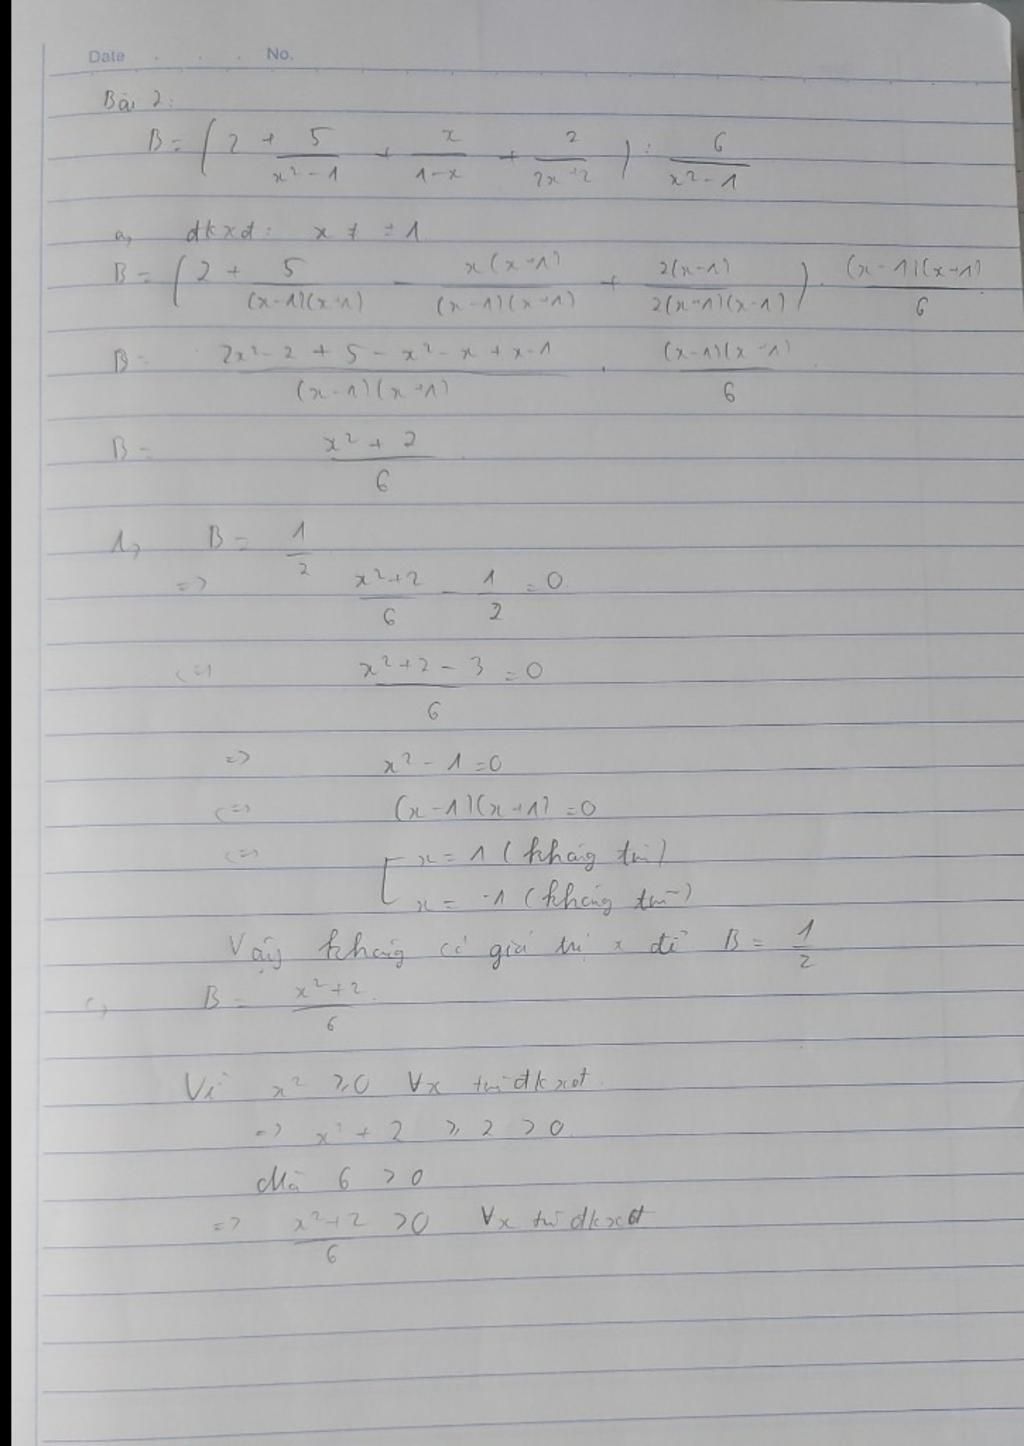 Date . . . No.
Bài 2:
B = ( 2 + 5/(x² - 1) + x/(1-x) + 2/(2x+2) ) : 6/(x² - 1)
a, đkxđ: x ≠ ± 1
B = ( 2 + 5/((x-1)(x+1)) - x(x+1)/((x-1)(x+1)) + 2(x-1)/(2(x+1)(x-1)) ) . (x-1)(x+1)/6
B = (2x² - 2 + 5 - x² - x + x - 1)/((x-1)(x+1)) . (x-1)(x+1)/6
B = (x² + 2)/6
B = 1/2
=> (x²+2)/6 - 1/2 = 0
<=> (x²+2-3)/6 = 0
=> x² - 1 = 0
<=> (x-1)(x+1) = 0
<=> [ x = 1 (không tm)
x = -1 (không tm)
Vậy không có giá trị x để B = 1/2
c, B = (x²+2)/6
Vì x² ⩾ 0 ∀x tm đkxđ
=> x² + 2 ⩾ 2 > 0
Mà 6 > 0
=> (x²+2)/6 > 0 ∀x tm đkxđ